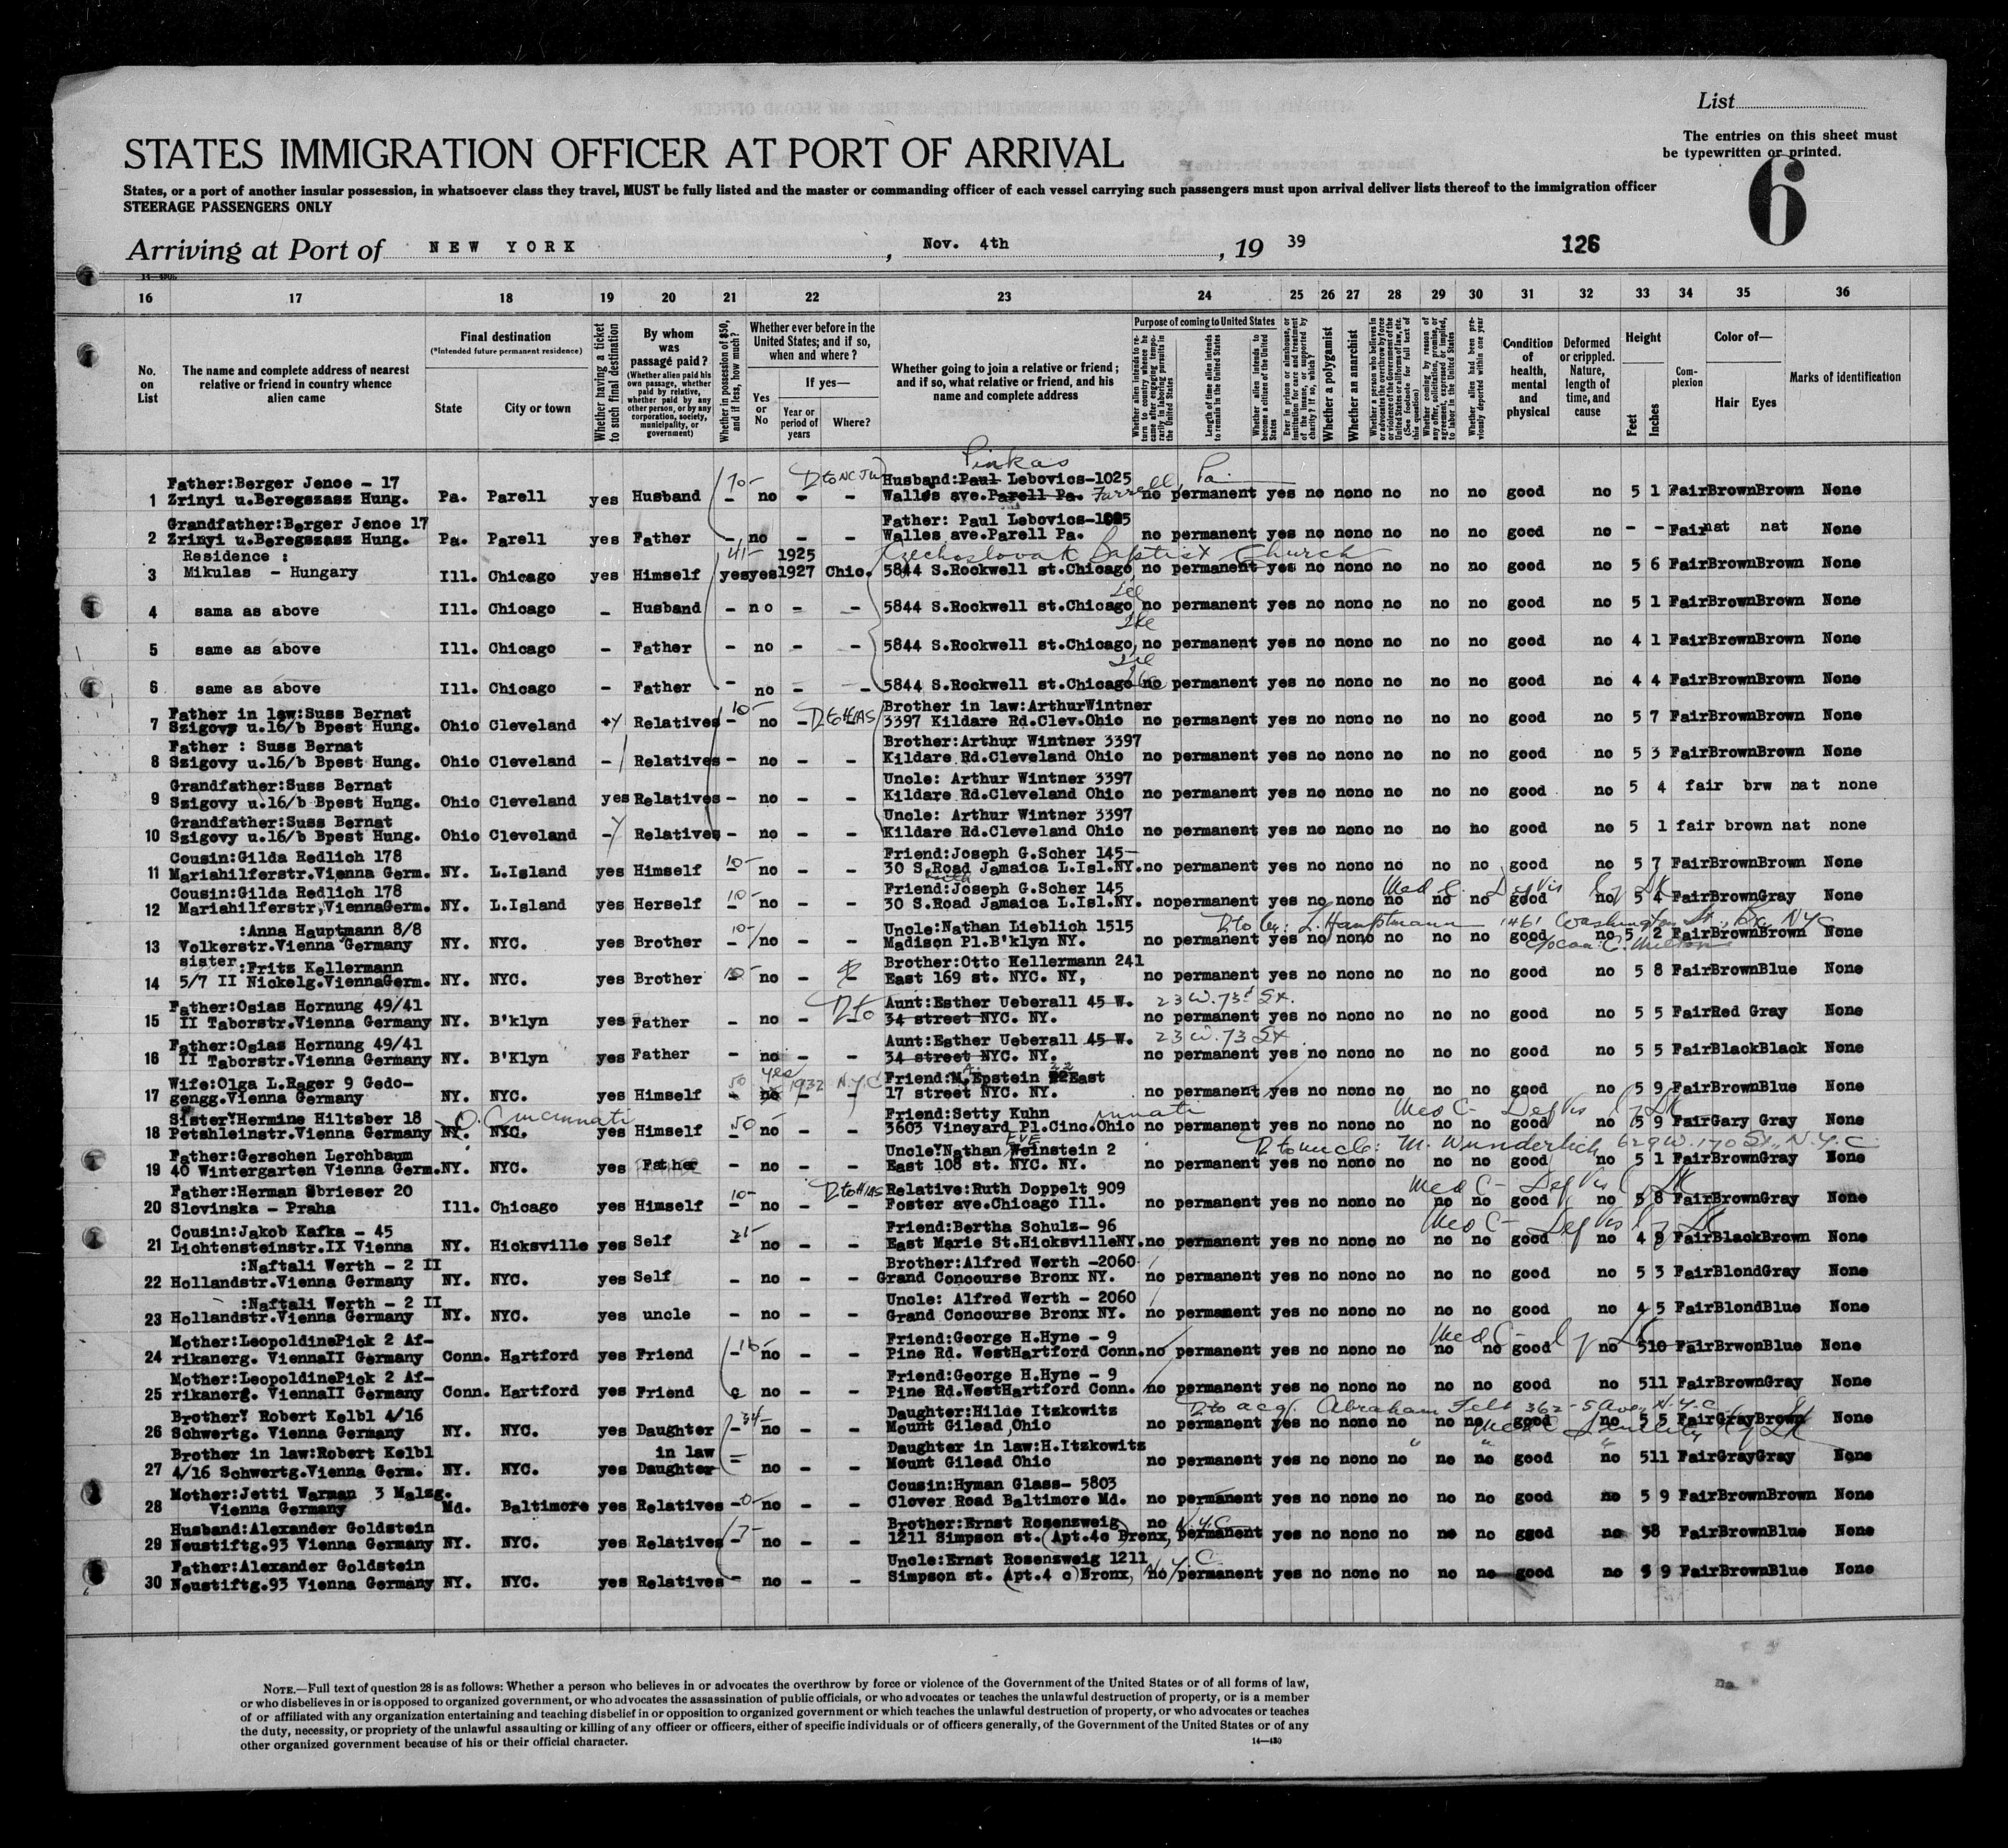 List
The entries on this sheet must
be typewritten or printed.
6
STATES IMMIGRATION OFFICER AT PORT OF ARRIVAL
States, or a port of another insular possession, in whatsoever class they travel, MUST be fully listed and the master or commanding officer of each vessel carrying such passengers must upon arrival deliver lists thereof to the immigration officer
STEERAGE PASSENGERS ONLY
Arriving at Port of NEW YORK, Nov. 4th, 19 39 126
16 17 18 19 20 21 22 23 24 25 26 27 28 29 30 31 32 33 34 35 36
No. on List
The name and complete address of nearest relative or friend in country whence alien came
Final destination
(*Intended future permanent residence)
State City or town
Whether having a ticket to such final destination
By whom was passage paid?
(Whether alien paid his own passage, whether paid by relative, whether paid by any other person, or by any corporation, society, municipality, or government)
Whether in possession of $50, and if less, how much?
Whether ever before in the United States; and if so, when and where?
If yes—
Yes or No Year or period of years Where?
Whether going to join a relative or friend; and if so, what relative or friend, and his name and complete address
Purpose of coming to United States
Whether alien intends to return to country whence he came after engaging temporarily in laboring pursuits in the United States
Length of time alien intends to remain in the United States
Whether alien intends to become a citizen of the United States
Ever in prison or almshouse, or institution for care and treatment of the insane, or supported by charity? If so, which?
Whether a polygamist
Whether an anarchist
Condition of health, mental and physical
Deformed or crippled. Nature, length of time, and cause
Height
Feet Inches
Complexion
Color of—
Hair Eyes
Marks of identification
Pinkas
Father:Berger Jenoe - 17 70- D to NCJW Husband:Paul Lebovics-1025 Farrell, Pa.
1 Zrinyi u.Beregszasz Hung. Pa. Parell yes Husband - no - - Walles ave.Parell Pa. no permanent yes no nono no no no good no 5 1 FairBrownBrown None
Grandfather:Berger Jenoe 17 Father: Paul Lebovics-1025
2 Zrinyi u.Beregszasz Hung. Pa. Parell yes Father - no - - Walles ave.Parell Pa. no permanent yes no nono no no no good no - - Fairnat nat None
Residence : 41- 1925 Czechoslovak Baptist Church
3 Mikulas - Hungary Ill. Chicago yes Himself yesyes1927 Chic. 5844 S.Rockwell st.Chicago no permanent yes no nono no no no good no 5 6 FairBrownBrown None
4 sama as above Ill. Chicago - Husband - no - - 5844 S.Rockwell st.Chicago no permanent yes no nono no no no good no 5 1 FairBrownBrown None
5 same as above Ill. Chicago - Father - no - - 5844 S.Rockwell st.Chicago no permanent yes no nono no no no good no 4 1 FairBrownBrown None
6 same as above Ill. Chicago - Father - no - - 5844 S.Rockwell st.Chicago no permanent yes no nono no no no good no 4 4 FairBrownBrown None
Father in law:Suss Bernat 10- D to HIAS Brother in law:ArthurWintner
7 Szigovy u.16/b Bpest Hung. Ohio Cleveland Relatives - no - 3397 Kildare Rd.Clev.Ohio no permanent yes no nono no no no good no 5 7 FairBrownBrown None
Father : Suss Bernat Brother:Arthur Wintner 3397
8 Szigovy u.16/b Bpest Hung. Ohio Cleveland - Relatives - no - - Kildare Rd.Cleveland Ohio no permanent yes no nono no no no good no 5 3 FairBrownBrown None
Grandfather:Suss Bernat Uncle: Arthur Wintner 3397
9 Szigovy u.16/b Bpest Hung. Ohio Cleveland yes Relatives - no - - Kildare Rd.Cleveland Ohio no permanent yes no nono no no no good no 5 4 fair brw nat none
Grandfather:Suss Bernat Uncle: Arthur Wintner 3397
10 Szigovy u.16/b Bpest Hung. Ohio Cleveland - Relatives - no - - Kildare Rd.Cleveland Ohio no permanent yes no nono no no no good no 5 1 fair brown nat none
Cousin:Gilda Redlich 178 10- Friend:Joseph G.Scher 145-
11 Mariahilferstr.Vienna Germ. NY. L.Island yes Himself - no - - 30 S.Road Jamaica L.Isl.NY. no permanent yes no nono no no no good no 5 7 FairBrownBrown None
Cousin:Gilda Redlich 178 10- Friend:Joseph G.Scher 145 Med C. Def Vis
12 Mariahilferstr,ViennaGerm. NY. L.Island yes Herself - no - - 30 S.Road Jamaica L.Isl.NY. nopermanent yes no nono no no no good no 5 4 FairBrownGray None
:Anna Hauptmann 8/8 10- Uncle:Nathan Lieblich 1515 D to br: L. Hauptmann 1461 Washington N.Y.C
13 Volkerstr.Vienna Germany NY. NYC. yes Brother - no - - Madison Pl.B'klyn NY. no permanent yes no nono no no no good no 5 2 FairBrownBrown None
sister:Fritz Kellermann Brother:Otto Kellermann 241
14 5/7 II Nickelg.ViennaGerm. NY. NYC. yes Brother 10- no - - East 169 st. NYC. NY, no permanent yes no nono no no no good no 5 8 FairBrownBlue None
Father:Osias Hornung 49/41 D to Aunt:Esther Ueberall 45 W. 23 W. 73d St.
15 II Taborstr.Vienna Germany NY. B'klyn yes Father - no - - 34 street NYC. NY. no permanent yes no nono no no no good no 5 5 FairRed Gray None
Father:Osias Hornung 49/41 Aunt:Esther Ueberall 45 W. 23 W. 73 St
16 II Taborstr.Vienna Germany NY. B'Klyn yes Father - no - - 34 street NYC. NY. no permanent yes no nono no no no good no 5 5 FairBlackBlack None
Wife:Olga L.Rager 9 Gedo- 50 yes 1932 N.Y.C Friend:M.Epstein 22 East
17 gengg.Vienna Germany NY. NYC. yes Himself - no - - 17 street NYC. NY. no permanent yes no nono no no no good no 5 9 FairBrownBlue None
Sister:Hermine Hiltsber 18 O. Cincinnati 50 Friend:Setty Kuhn innati Med C- Def Vis
18 Petshleinstr.Vienna Germany NY. NYC. yes Himself - no - - 3603 Vineyard Pl.Cinc.Ohio no permanent yes no nono no no no good no 5 9 FairGary Gray None
Father:Gerschen Lerchbaum Uncle:Nathan Weinstein 2 D to uncle: M. Wunderlich, 629 W. 170 St., N.Y.C.
19 40 Wintergarten Vienna Germ.NY. NYC. yes Father - no - - East 108 st. NYC. NY. no permanent yes no nono no no no good no 5 1 FairBrownGray None
Father:Herman Sbrieser 20 10- D to HIAS Relative:Ruth Doppelt 909 Med C- Def Vis
20 Slovinska - Praha Ill. Chicago yes Himself - no - - Foster ave.Chicago Ill. no permanent yes no nono no no no good no 5 8 FairBrownGray None
Cousin:Jakob Kafka - 45 Friend:Bertha Schulz- 96 Med C- Def Vis
21 Lichtensteinstr.IX Vienna NY. Hicksville yes Self - no - - East Marie St.HicksvilleNY.no permanent yes no nono no no no good no 4 9 FairBlackBrown None
:Naftali Werth - 2 II Brother:Alfred Werth -2060
22 Hollandstr.Vienna Germany NY. NYC. yes Self - no - - Grand Concourse Bronx NY. no permanent yes no nono no no no good no 5 3 FairBlondGray None
:Naftali Werth - 2 II Uncle: Alfred Werth - 2060
23 Hollandstr.Vienna Germany NY. NYC. yes uncle - no - - Grand Concourse Bronx NY. no permanent yes no nono no no no good no 4 5 FairBlondBlue None
Mother:LeopoldinePick 2 Af- Friend:George H.Hyne - 9 Med C-
24 rikanerg. ViennaII Germany Conn. Hartford yes Friend - no - - Pine Rd. WestHartford Conn.no permanent yes no nono no no no good no 510 FairBrwonBlue None
Mother:LeopoldinePick 2 Af- Friend:George H.Hyne - 9
25 rikanerg. ViennaII Germany Conn. Hartford yes Friend no - - Pine Rd.WestHartford Conn. no permanent yes no nono no no no good no 511 FairBrownGray None
Brother: Robert Kelbl 4/16 34- Daughter:Hilde Itzkowitz D to acq. Abraham Felt 362-5 Ave. N.Y.C.
26 Schwertg. Vienna Germany NY. NYC. yes Daughter - no - - Mount Gilead,Ohio no permanent yes no nono no no no good no 5 5 FairGrayBrown None
Brother in law:Robert Kelbl in law Daughter in law:H.Itzkowitz " " "
27 4/16 Schwertg.Vienna Germ. NY. NYC. yes Daughter no - - Mount Gilead Ohio no permanent yes no nono no no no good no 511 FairGrayGray None
Mother:Jetti Warman 3 Malzg. Cousin:Hyman Glass- 5803
28 Vienna Germany Md. Baltimore yes Relatives -0- no - - Clover Road Baltimore Md. no permanent yes no nono no no no good no 5 9 FairBrownBrown None
Husband:Alexander Goldstein 7- Brother:Ernst Rosenzweig no N.Y.C
29 Neustiftg.93 Vienna Germany NY. NYC. yes Relatives - no - - 1211 Simpson st.(Apt.4c)Bronx, permanent yes no nono no no no ggod no 58 FairBrownBlue None
Father:Alexander Goldstein Uncle:Ernst Rosenzweig 1211 N.Y.C.
30 Neustiftg.93 Vienna Germany NY. NYC. yes Relatives - no - - Simpson st. (Apt.4 c)Bronx, no permanent yes no nono no no no good no 5 9 FairBrownBlue None
NOTE.—Full text of question 28 is as follows: Whether a person who believes in or advocates the overthrow by force or violence of the Government of the United States or of all forms of law,
or who disbelieves in or is opposed to organized government, or who advocates the assassination of public officials, or who advocates or teaches the unlawful destruction of property, or is a member
of or affiliated with any organization entertaining and teaching disbelief in or opposition to organized government or which teaches the unlawful destruction of property, or who advocates or teaches
the duty, necessity, or propriety of the unlawful assaulting or killing of any officer or officers, either of specific individuals or of officers generally, of the Government of the United States or of any
other organized government because of his or their official character.
14—430